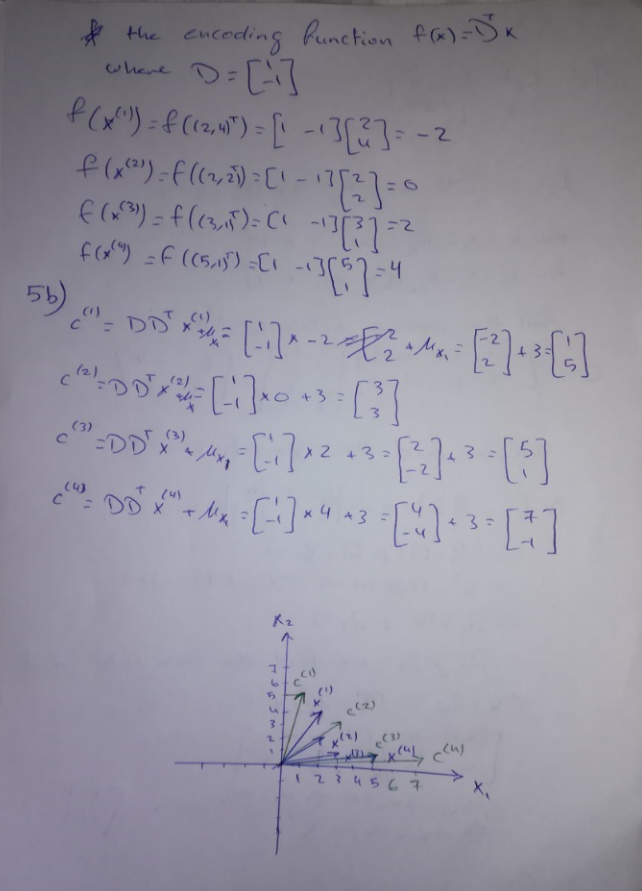 * the encoding function f(x) = Dᵀx
where D = [1 -1]
f(x⁽¹⁾) = f((2,4)ᵀ) = [1 -1][2 4] = -2
f(x⁽²⁾) = f((2,2)ᵀ) = [1 -1][2 2] = 0
f(x⁽³⁾) = f((3,1)ᵀ) = [1 -1][3 1] = 2
f(x⁽⁴⁾) = f((5,1)ᵀ) = [1 -1][5 1] = 4
5b)
c⁽¹⁾ = DDᵀx⁽¹⁾ + μx₁ = [1 -1] × -2 + μx₁ = [-2 2] + 3 = [1 5]
c⁽²⁾ = DDᵀx⁽²⁾ + μx = [1 -1] × 0 + 3 = [3 3]
c⁽³⁾ = DDᵀx⁽³⁾ + μx₁ = [1 -1] × 2 + 3 = [2 -2] + 3 = [5 1]
c⁽⁴⁾ = DDᵀx⁽⁴⁾ + μx₁ = [1 -1] × 4 + 3 = [4 -4] + 3 = [7 -1]
x₂
7
6 c⁽¹⁾
5 x⁽¹⁾
4 c⁽²⁾
3
2 x⁽²⁾ c⁽³⁾
1 x⁽³⁾ x⁽⁴⁾ c⁽⁴⁾
1 2 3 4 5 6 7 x₁